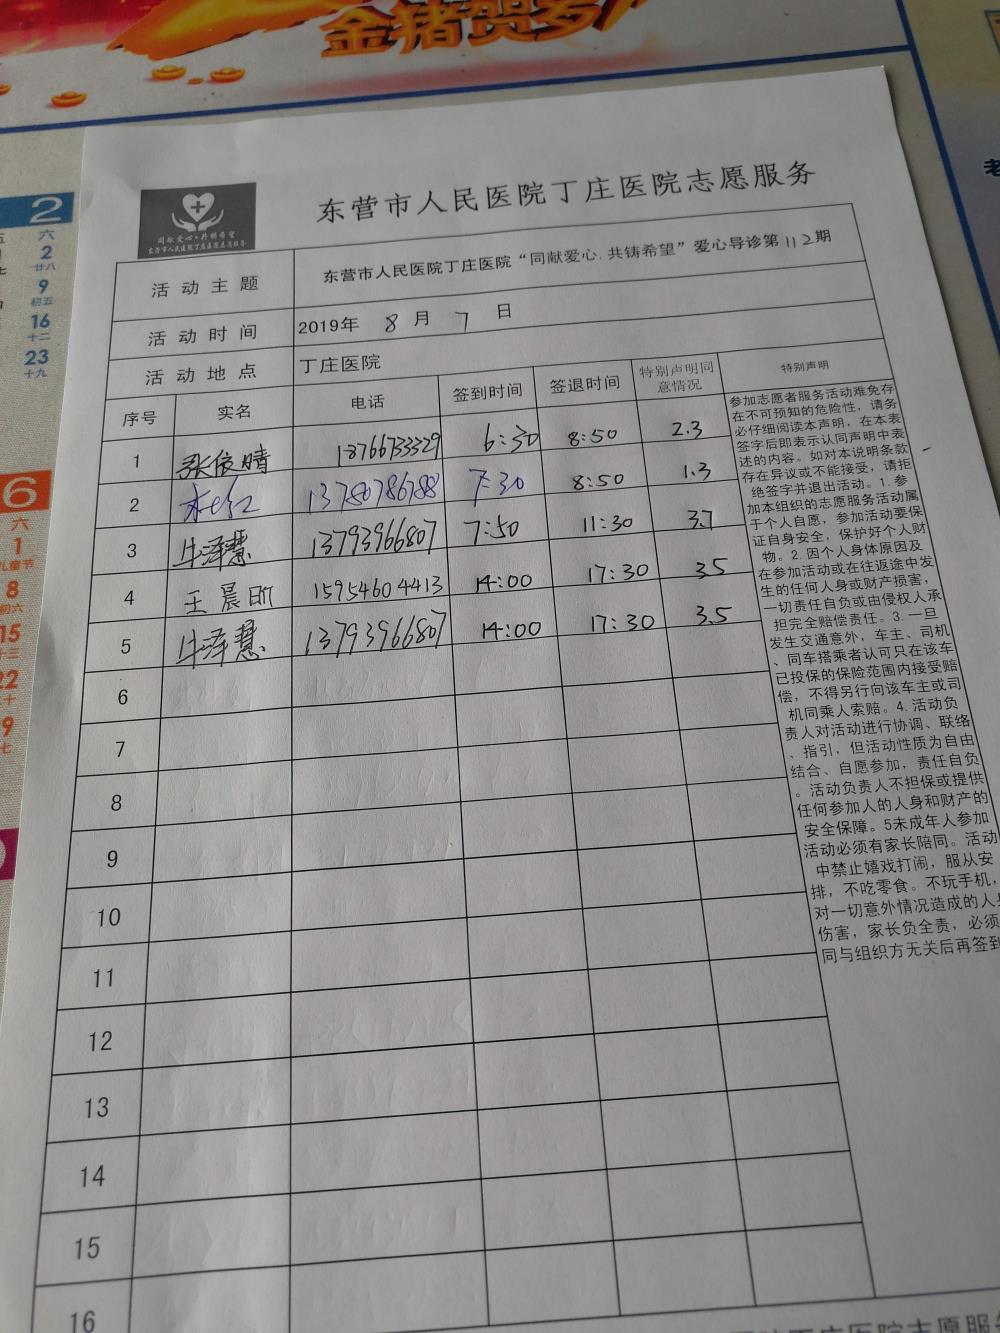 金猪贺岁
2
六
2
廿八
9
初五
16
十二
23
十九
6
六
1
儿童节
8
初六
15
十三
22
二十
同献爱心·共铸希望
东营市人民医院丁庄医院志愿服务
东营市人民医院丁庄医院志愿服务
活动主题 东营市人民医院丁庄医院“同献爱心.共铸希望”爱心导诊第112期
活动时间 2019年 8 月 7 日
活动地点 丁庄医院
序号 实名 电话 签到时间 签退时间 特别声明同意情况 特别声明
1 张依晴 18766733329 6:30 8:50 2.3
2 13780786788 7:30 8:50 1.3
3 牛泽慧 13793966807 7:50 11:30 3.7
4 王晨昕 15954604413 14:00 17:30 3.5
5 牛泽慧 13793966807 14:00 17:30 3.5
6
7
8
9
10
11
12
13
14
15
16
参加志愿者服务活动难免存
在不可预知的危险性，请务
必仔细阅读本声明，在本表
签字后即表示认同声明中表
述的内容。如对本说明条款
存在异议或不能接受，请拒
绝签字并退出活动。1.参
加本组织的志愿服务活动属
于个人自愿，参加活动要保
证自身安全，保护好个人财
物。2.因个人身体原因及
在参加活动或在往返途中发
生的任何人身或财产损害，
一切责任自负或由侵权人承
担完全赔偿责任。3.一旦
发生交通意外，车主、司机
、同车搭乘者认可只在该车
已投保的保险范围内接受赔
偿，不得另行向该车主或司
机同乘人索赔。4.活动负
责人对活动进行协调、联络
、指引，但活动性质为自由
结合、自愿参加，责任自负
。活动负责人不担保或提供
任何参加人的人身和财产的
安全保障。5未成年人参加
活动必须有家长陪同。活动
中禁止嬉戏打闹，服从安
排，不吃零食。不玩手机，
对一切意外情况造成的人身
伤害，家长负全责，必须
同与组织方无关后再签到
丁庄医院志愿服务